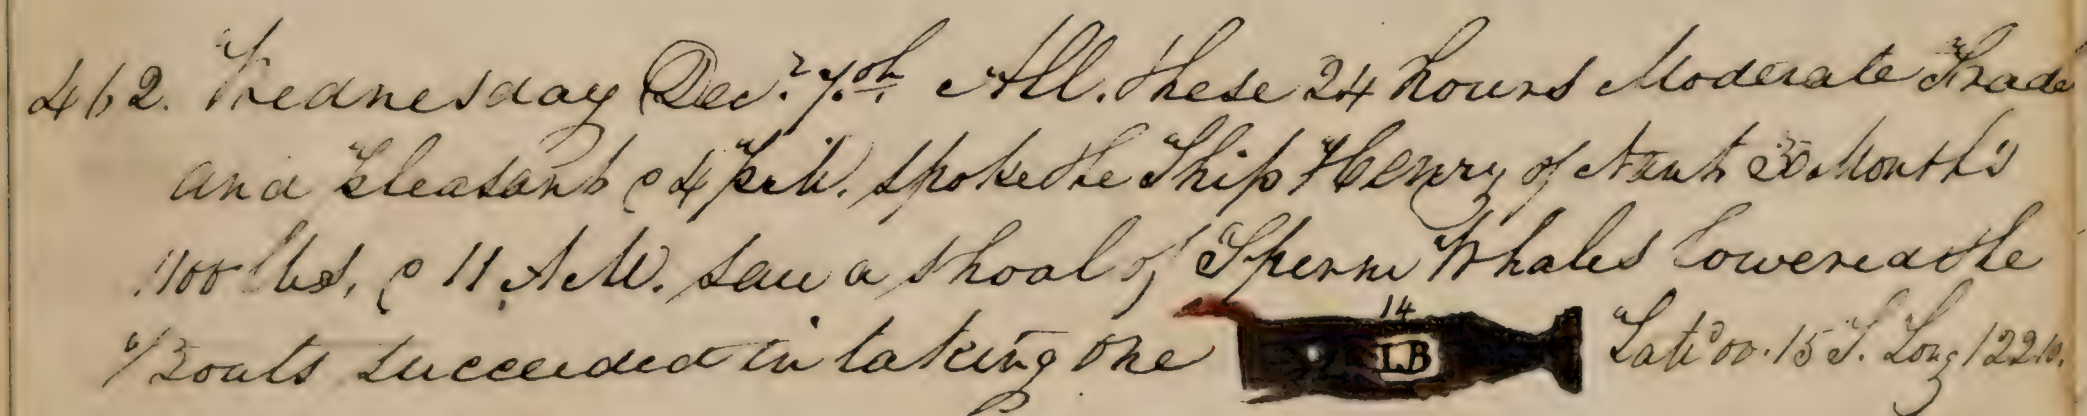 462. Wednesday Decr. 7.th All. these 24 hours Moderate Trade
and Pleasant @ 4 P.M. spoke the Ship Henry of Nant 30 Months
1100 bbls, @ 11 A.M. saw a shoal of Sperm Whales lowered the
Boats succeeded in taking one 14 LB Latd 00.15 S. Long 122 10.